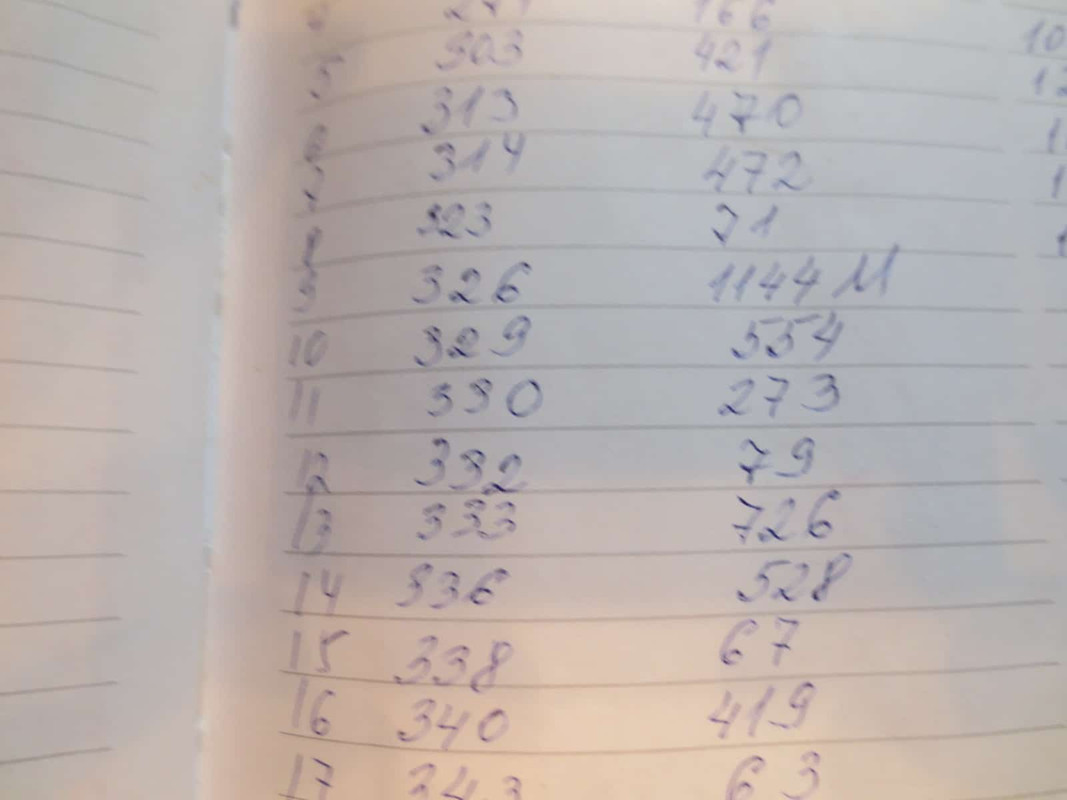 166
5 303 421
6 313 470
7 314 472
8 323 71
9 326 1144 М
10 329 554
11 330 273
12 332 79
13 333 726
14 336 528
15 338 67
16 340 419
17 343 63